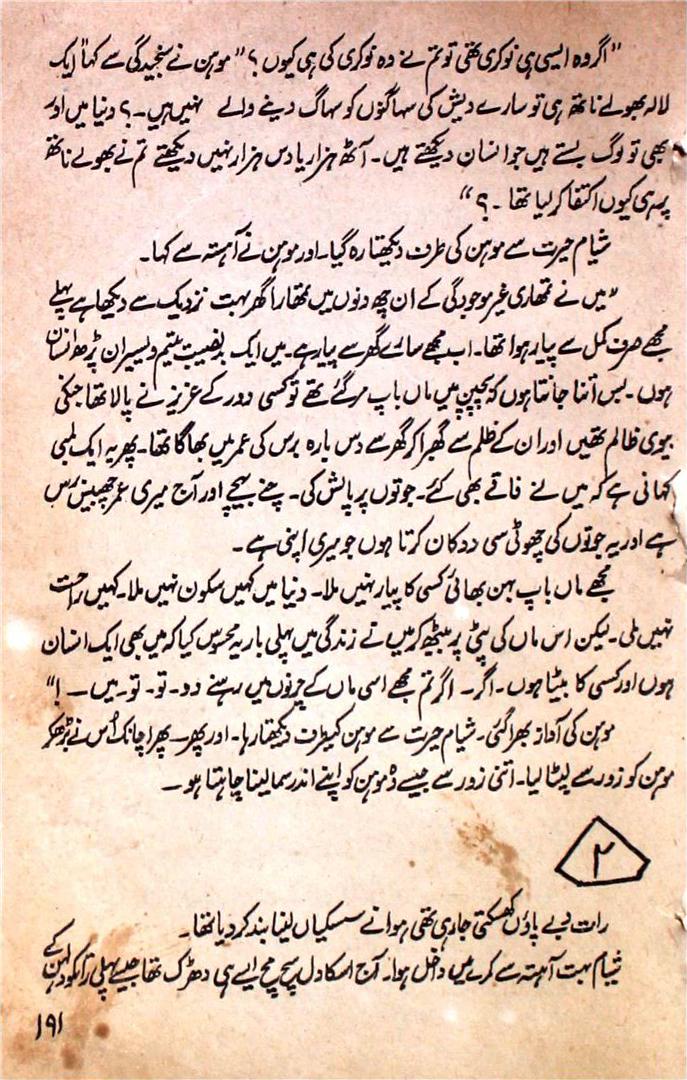 ”اگر وہ ایسی ہی نوکری تھی تو تم نے وہ نوکری کی ہی کیوں؟“ موہن نے سنجیدگی سے کہا ”ایک
لالہ بھولے ناتھ ہی تو سارے دیش کی سہاگنوں کو سہاگ دینے والے نہیں ہیں۔؟ دنیا میں اور
بھی تو لوگ بستے ہیں جو انسان دیکھتے ہیں۔ آٹھ ہزار یا دس ہزار نہیں دیکھتے تم نے بھولے ناتھ
پر ہی کیوں اکتفا کر لیا تھا۔؟“
شیام حیرت سے موہن کی طرف دیکھتا رہ گیا۔ اور موہن نے آہستہ سے کہا۔
”میں نے تمھاری غیر موجودگی کے ان چھ دنوں میں تمھارا گھر بہت نزدیک سے دیکھا ہے پہلے
مجھے صرف کمل سے پیار ہوا تھا۔ اب مجھے سارے گھر سے پیار ہے۔ میں ایک بدنصیب یتیم و یسیر ان پڑھ انسان
ہوں۔ بس اتنا جانتا ہوں کہ بچپن میں ماں باپ مر گئے تھے تو کسی دور کے عزیز نے پالا تھا جنکی
بیوی ظالم تھیں اور ان کے ظلم سے گھبرا کر گھر سے دس بارہ برس کی عمر میں بھاگا تھا۔ پھر یہ ایک لمبی
کہانی ہے کہ میں نے فاقے بھی کئے۔ جوتوں پر پالش کی۔ چنے بیچے اور آج میری عمر چھبیس برس
ہے اور یہ جوتوں کی چھوٹی سی دوکان کرتا ہوں جو میری اپنی ہے۔
مجھے ماں باپ بہن بھائی کسی کا پیار نہیں ملا۔ دنیا میں کہیں سکون نہیں ملا۔ کہیں راحت
نہیں ملی۔ لیکن اس ماں کی پٹی پر بیٹھ کر میں نے زندگی میں پہلی بار یہ محسوس کیا کہ میں بھی ایک انسان
ہوں اور کسی کا بیٹا ہوں۔ اگر۔ اگر تم مجھے اسی ماں کے چرنوں میں رہنے دو۔ تو۔ تو۔ میں —!“
موہن کی آواز بھرا گئی۔ شیام حیرت سے موہن کیطرف دیکھتا رہا۔ اور پھر— پھر اچانک اُس نے بڑھکر
موہن کو زور سے لپٹا لیا۔ اتنی زور سے جیسے وہ موہن کو اپنے اندر سما لینا چاہتا ہو —
۲
رات دبے پاؤں کھسکتی جارہی تھی ہوا نے سسکیاں لینا بند کر دیا تھا۔
شیام بہت آہستہ سے کمرے میں داخل ہوا۔ آج اسکا دل سچ مچ ایسے ہی دھڑک تھا جیسے پہلی رات کو دلہن کے
۱۹۱